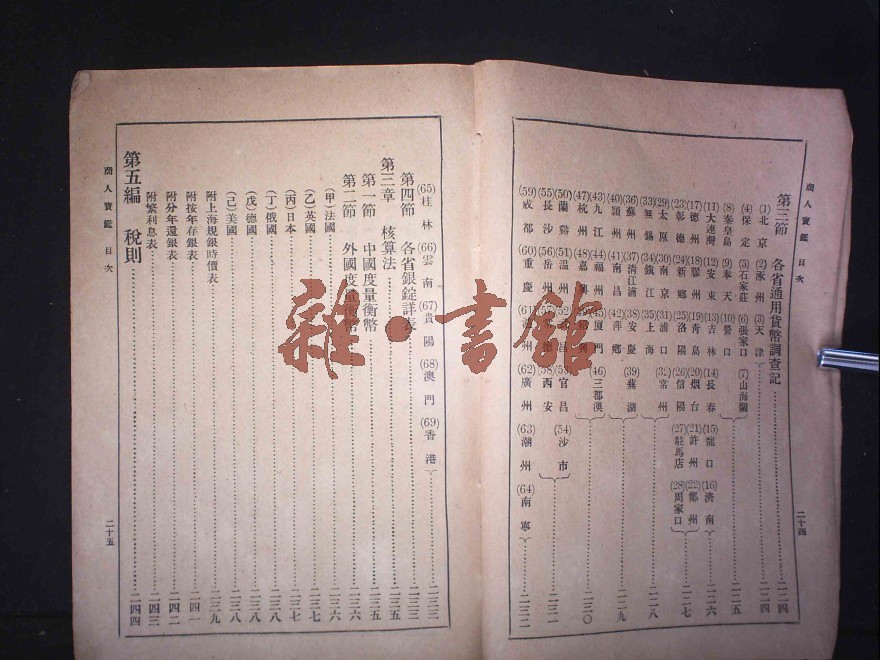 商人寶鑑 目次
二十四
第三節 各省通用貨幣調查記 二二四
(1)北京 (2)涿州 (3)天津 二二四
(4)保定 (5)石家莊 (6)張家口 (7)山海關
(8)秦皇島 (9)奉天 (10)營口 二二五
(11)大連灣 (12)安東 (13)吉林 (14)長春 (15)龍口 (16)濟南 二二六
(17)德州 (18)膠州 (19)青島 (20)烟台 (21)許州 (22)鄭州
(23)彰德 (24)新鄉 (25)洛陽 (26)信陽 (27)駐馬店 (28)周家口 二二七
(29)太原 (30)南京 (31)浦口 (32)常州
(33)無錫 (34)鎮江 (35)上海 二二八
(36)蘇州 (37)清江浦 (38)安慶 (39)蕪湖
(40)潁州 (41)南昌 (42)萍鄉 二二九
(43)九江 (44)福州 (45)廈門 (46)三都澳
(47)杭州 (48)嘉興 (49)紹興 二三〇
(50)蘭谿 (51)溫州 (52)武昌 (53)宜昌 (54)沙市
(55)長沙 (56)岳州 (57)常德 (58)西安 二三一
(59)成都 (60)重慶 (61)瀘州 (62)廣州 (63)潮州 (64)南寧 二三二
(65)桂林 (66)雲南 (67)貴陽 (68)澳門 (69)香港 二三三
第四節 各省銀錠詳表 二三三
第三章 核算法 二三五
第一節 中國度量衡幣 二三五
第二節 外國度量衡幣 二三六
(甲)法國 二三六
(乙)英國 二三七
(丙)日本 二三七
(丁)俄國 二三八
(戊)德國 二三八
(己)美國 二三八
附上海規銀時價表 二三九
附按年存銀表 二四一
附分年還銀表 二四二
附繁利息表 二四三
第五編 稅則 二四四
商人寶鑑 目次
二十五
雜·書館